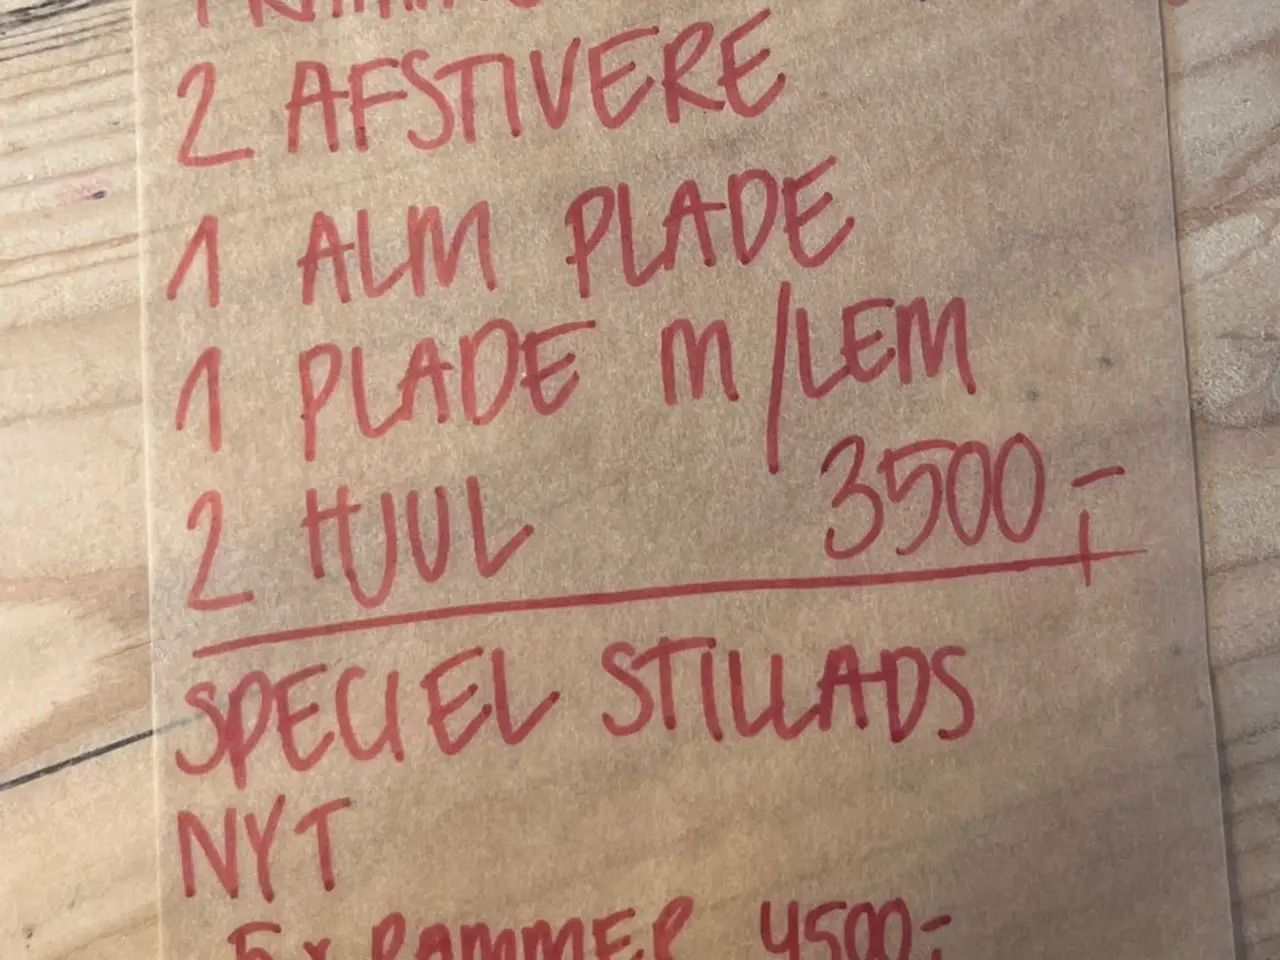 2 AFSTIVERE
1 ALM PLADE
1 PLADE M/LEM
2 HJUL 3500,-
SPECIEL STILLADS
NYT
5 x RAMMER 4500,-